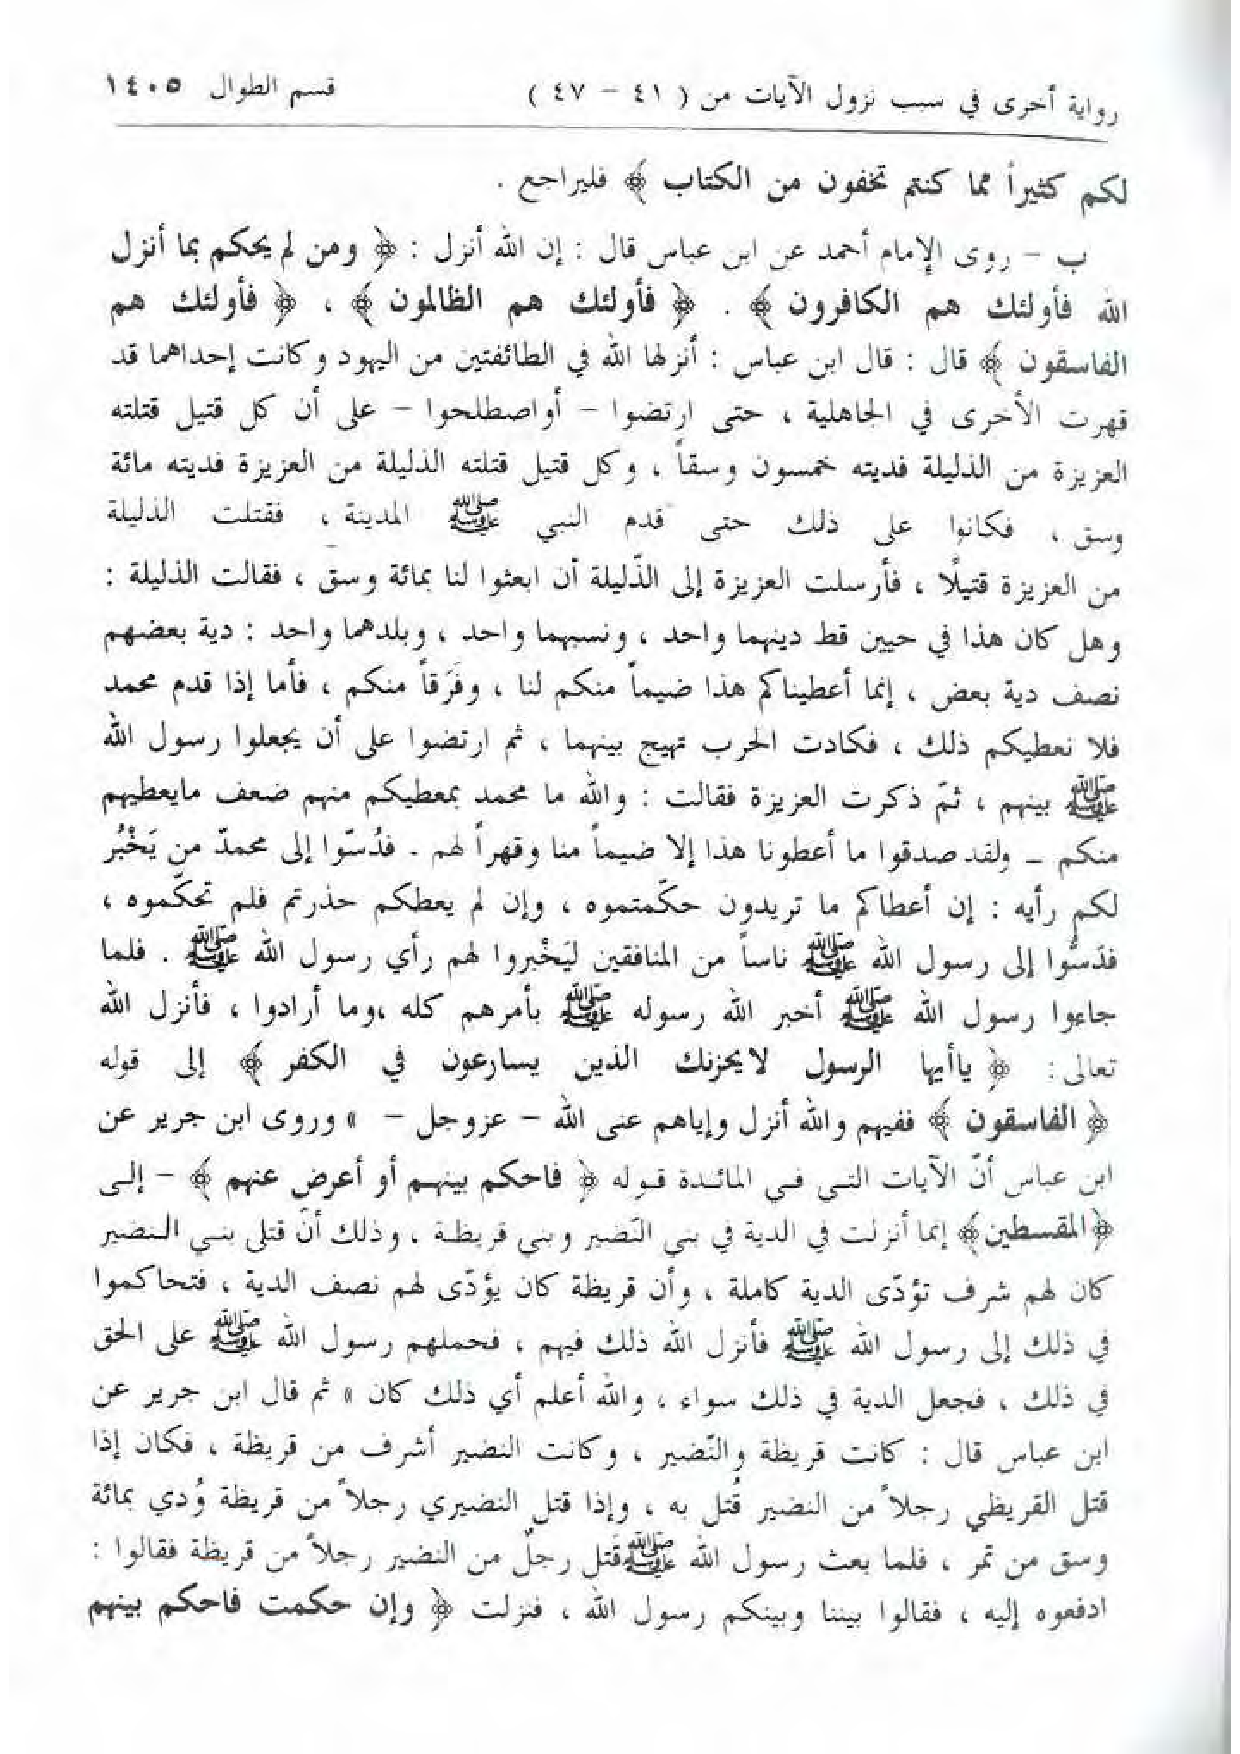 رواية أخرى في سبب نزول الآيات من ( ٤١ – ٤٧ ) قسم الطوال ١٤٠٥
لكم كثيراً مما كنتم تخفون من الكتاب ﴾ فليراجع .
ب – روى الإمام أحمد عن ابن عباس قال : إن الله أنزل : ﴿ ومن لم يحكم بما أنزل
الله فأولئك هم الكافرون ﴾ . ﴿ فأولئك هم الظالمون ﴾ ، ﴿ فأولئك هم
الفاسقون ﴾ قال : قال ابن عباس : أنزلها الله في الطائفتين من اليهود وكانت إحداهما قد
قهرت الأخرى في الجاهلية ، حتى ارتضوا – أواصطلحوا – على أن كل قتيل قتلته
العزيزة من الذليلة فديته خمسون وسقاً ، وكل قتيل قتلته الذليلة من العزيزة فديته مائة
وسق ، فكانوا على ذلك حتى قدم النبي ﷺ المدينة ، فقتلت الذليلة
من العزيزة قتيلًا ، فأرسلت العزيزة إلى الذّليلة أن ابعثوا لنا بمائة وسق ، فقالت الذليلة :
وهل كان هذا في حيين قط دينهما واحد ، ونسبهما واحد ، وبلدهما واحد : دية بعضهم
نصف دية بعض ، إنما أعطيناكم هذا ضيماً منكم لنا ، وفَرَقاً منكم ، فأما إذا قدم محمد
فلا نعطيكم ذلك ، فكادت الحرب تهيج بينهما ، ثم ارتضوا على أن يجعلوا رسول الله
ﷺ بينهم ، ثمّ ذكرت العزيزة فقالت : والله ما محمد بمعطيكم منهم ضعف مايعطيهم
منكم – ولقد صدقوا ما أعطونا هذا إلا ضيماً منا وقهراً لهم . فدُسّوا إلى محمدّ من يَخْبُر
لكم رأيه : إن أعطاكم ما تريدون حكّمتموه ، وإن لم يعطكم حذرتم فلم تحكّموه ،
فدَسُّوا إلى رسول الله ﷺ ناساً من المنافقين ليَخْبروا لهم رأي رسول الله ﷺ . فلما
جاءوا رسول الله ﷺ أخبر الله رسوله ﷺ بأمرهم كله ،وما أرادوا ، فأنزل الله
تعالى : ﴿ ياأيها الرسول لايحزنك الذين يسارعون في الكفر ﴾ إلى قوله
﴿ الفاسقون ﴾ ففيهم والله أنزل وإياهم عنى الله – عزوجل – » وروى ابن جرير عن
ابن عباس أنّ الآيات التي في المائدة قوله ﴿ فاحكم بينهم أو أعرض عنهم ﴾ – إلى
﴿ المقسطين ﴾ إنما أنزلت في الدية في بني النَضير وبني قريظة ، وذلك أنّ قتلى بني النضير
كان لهم شرف تؤدّى الدية كاملة ، وأن قريظة كان يؤدّى لهم نصف الدية ، فتحاكموا
في ذلك إلى رسول الله ﷺ فأنزل الله ذلك فيهم ، فحملهم رسول الله ﷺ على الحق
في ذلك ، فجعل الدية في ذلك سواء ، والله أعلم أي ذلك كان » ثم قال ابن جرير عن
ابن عباس قال : كانت قريظة والنّضير ، وكانت النضير أشرف من قريظة ، فكان إذا
قتل القريظي رجلاً من النضير قُتل به ، وإذا قتل النضيري رجلاً من قريظة وُدي بمائة
وسق من تمر ، فلما بعث رسول الله ﷺ قَتل رجلٌ من النضير رجلاً من قريظة فقالوا :
ادفعوه إليه ، فقالوا بيننا وبينكم رسول الله ، فنزلت ﴿ وإن حكمت فاحكم بينهم